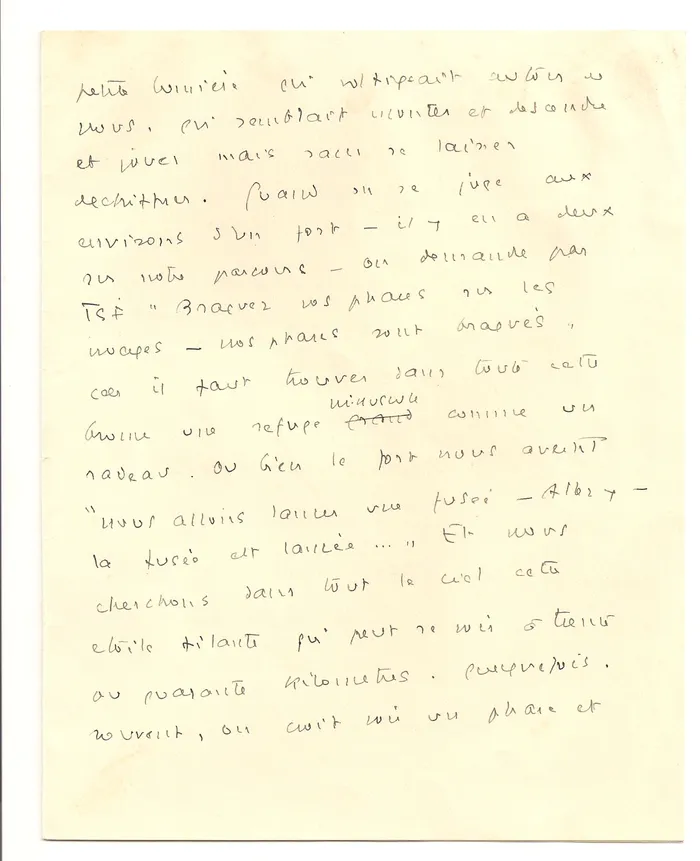 petite lumière qui voltigeait autour de
nous. qui semblait monter et descendre
et jouer mais sans se laisser
dechiffrer. Quand on se juge aux
environs d'un fort — il y en a deux
sur notre parcours — on demande par
TSF " Braquez vos phares sur les
nuages — nos phares sont braqués "
car il faut trouver dans toute cette
brume une refuge grand minuscule comme un
radeau. Ou bien le fort nous avertit
"nous allons lancer une fusée — Allez y —
la fusée est lancée ... " Et nous
cherchons dans tout le ciel cette
etoile filante qui peut se voir à trente
ou quarante kilometres. Quelquefois.
souvent, on croit voir un phare et